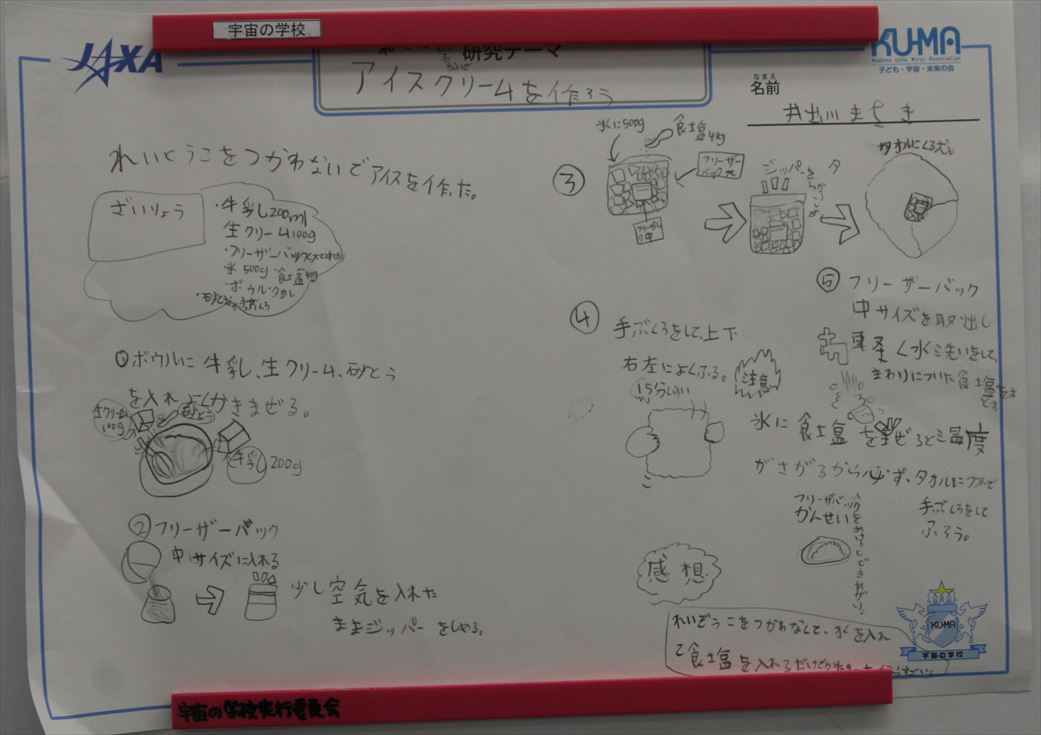 宇宙の学校
JAXA
研究テーマ
KU-MA
Kodomo Uchu Mirai Association
子ども・宇宙・未来の会
アイスクリームを作ろう
なまえ
名前
れいとうこをつかわないでアイスを作った。
ざいりょう
・牛乳200ml
生クリーム100g
・フリーザーバック
氷500g 食塩
・ボウル タオル
①ボウルに牛乳、生クリーム、砂とう
を入れよくかきまぜる。
生クリーム
100g
砂とう
牛乳 200g
②フリーザーバック
中サイズに入れる
少し空気を入れた
ままジッパーをしめる。
③
氷500g
食塩
フリーザー
バック大
ジッパーを
タオルにくるむ
④
手ぶくろをして、上下
右左によくふる。
15分くらい
注意
⑤フリーザーバック
中サイズを取出し
軽く水洗いをして、
まわりについた食塩を
氷に食塩をまぜると温度
がさがるから必ず、タオルにつつんで
手ぶくろをして
ふろう。
フリーザバックを
かんせい
感想
れいぞうこをつかわなくて、氷を入れ
て食塩を入れるだけで
KUMA
宇宙の学校
宇宙の学校実行委員会